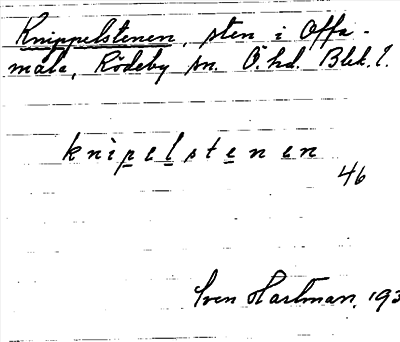 Knippelstenen, sten i Offa-
måla, Rödeby sn. Ö. hd. Blek. l.
knipelstenen
46
Sven Hartman, 193